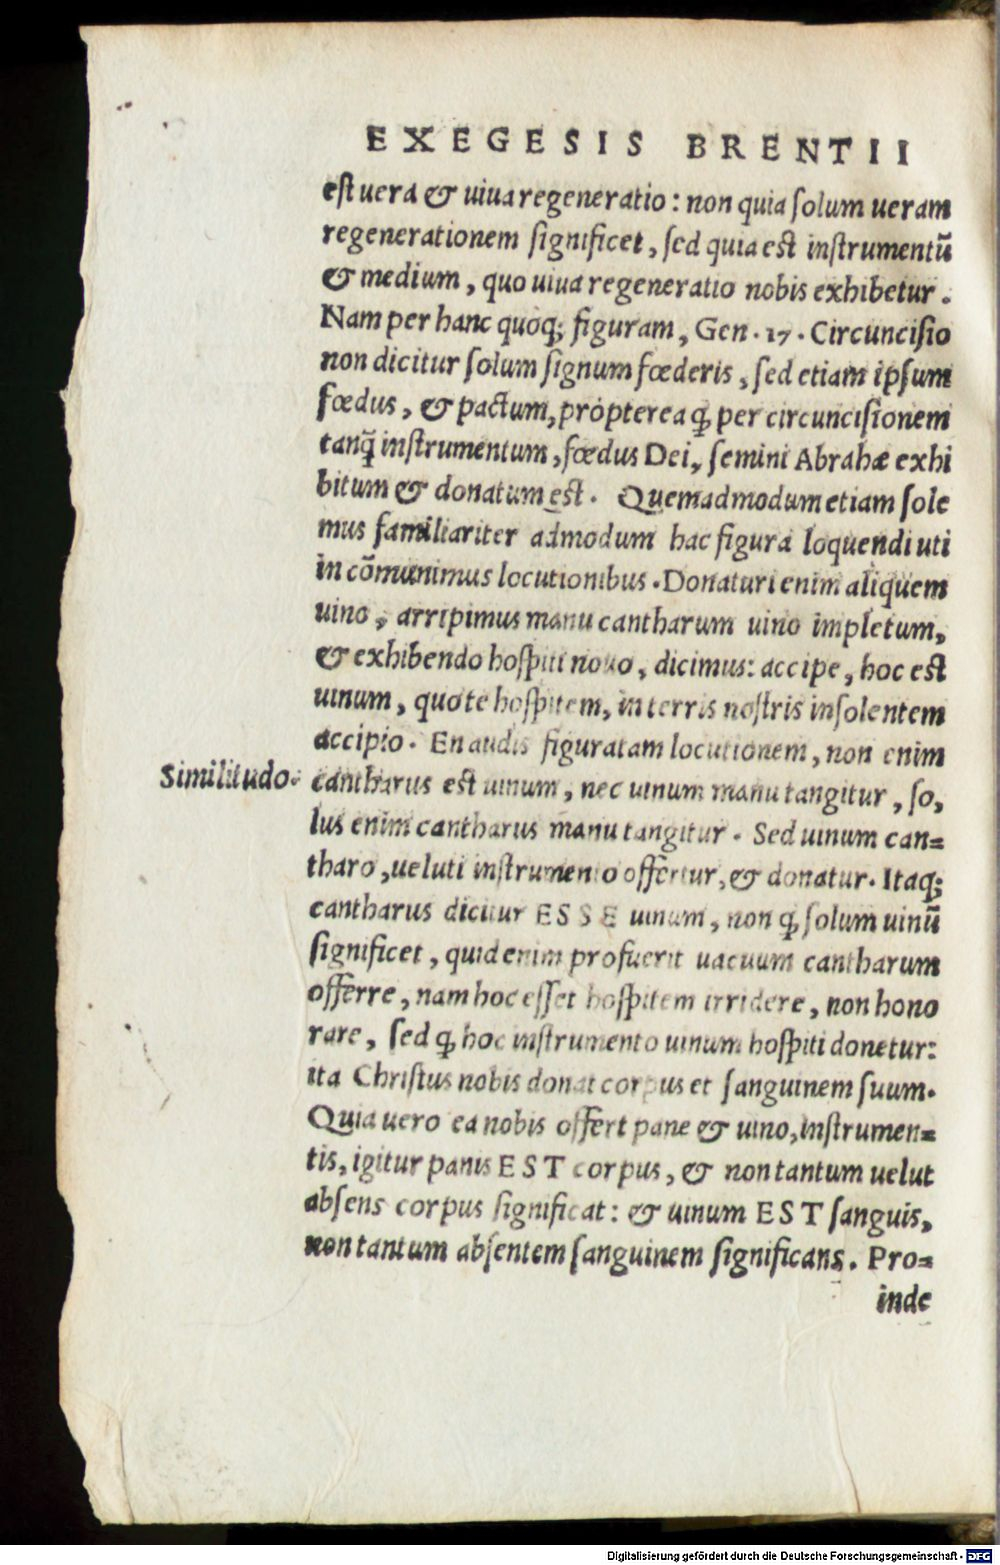 EXEGESIS BRENTII
est uera & uiua regeneratio: non quia solum ueram
regenerationem significet, sed quia est instrumentũ
& medium, quo uiua regeneratio nobis exhibetur.
Nam per hanc quoq; figuram, Gen. 17. Circuncisio
non dicitur solum signum fœderis, sed etiam ipsum
fœdus, & pactum, propterea ꝙ per circuncisionem
tanq̃ instrumentum, fœdus Dei, semini Abrahæ exhi
bitum & donatum est. Quemadmodum etiam sole
mus familiariter admodum hac figura loquendi uti
in cõmunimus locutionibus. Donaturi enim aliquem
uino, arripimus manu cantharum uino impletum,
& exhibendo hospiti nouo, dicimus: accipe, hoc est
uinum, quo te hospitem, in terris nostris insolentem
accipio. En audis figuratam locutionem, non enim
Similitudo. cantharus est uinum, nec uinum manu tangitur, so,
lus enim cantharus manu tangitur. Sed uinum can=
tharo, ueluti instrumento offertur, & donatur. Itaq;
cantharus dicitur ESSE uinum, non ꝙ solum uinũ
significet, quid enim profuerit uacuum cantharum
offerre, nam hoc esset hospitem irridere, non hono
rare, sed ꝙ hoc instrumento uinum hospiti donetur:
ita Christus nobis donat corpus et sanguinem suum.
Quia uero ea nobis offert pane & uino, instrumen=
tis, igitur panis EST corpus, & non tantum uelut
absens corpus significat: & uinum EST sanguis,
non tantum absentem sanguinem significans. Pro=
inde
Digitalisierung gefördert durch die Deutsche Forschungsgemeinschaft - DFG